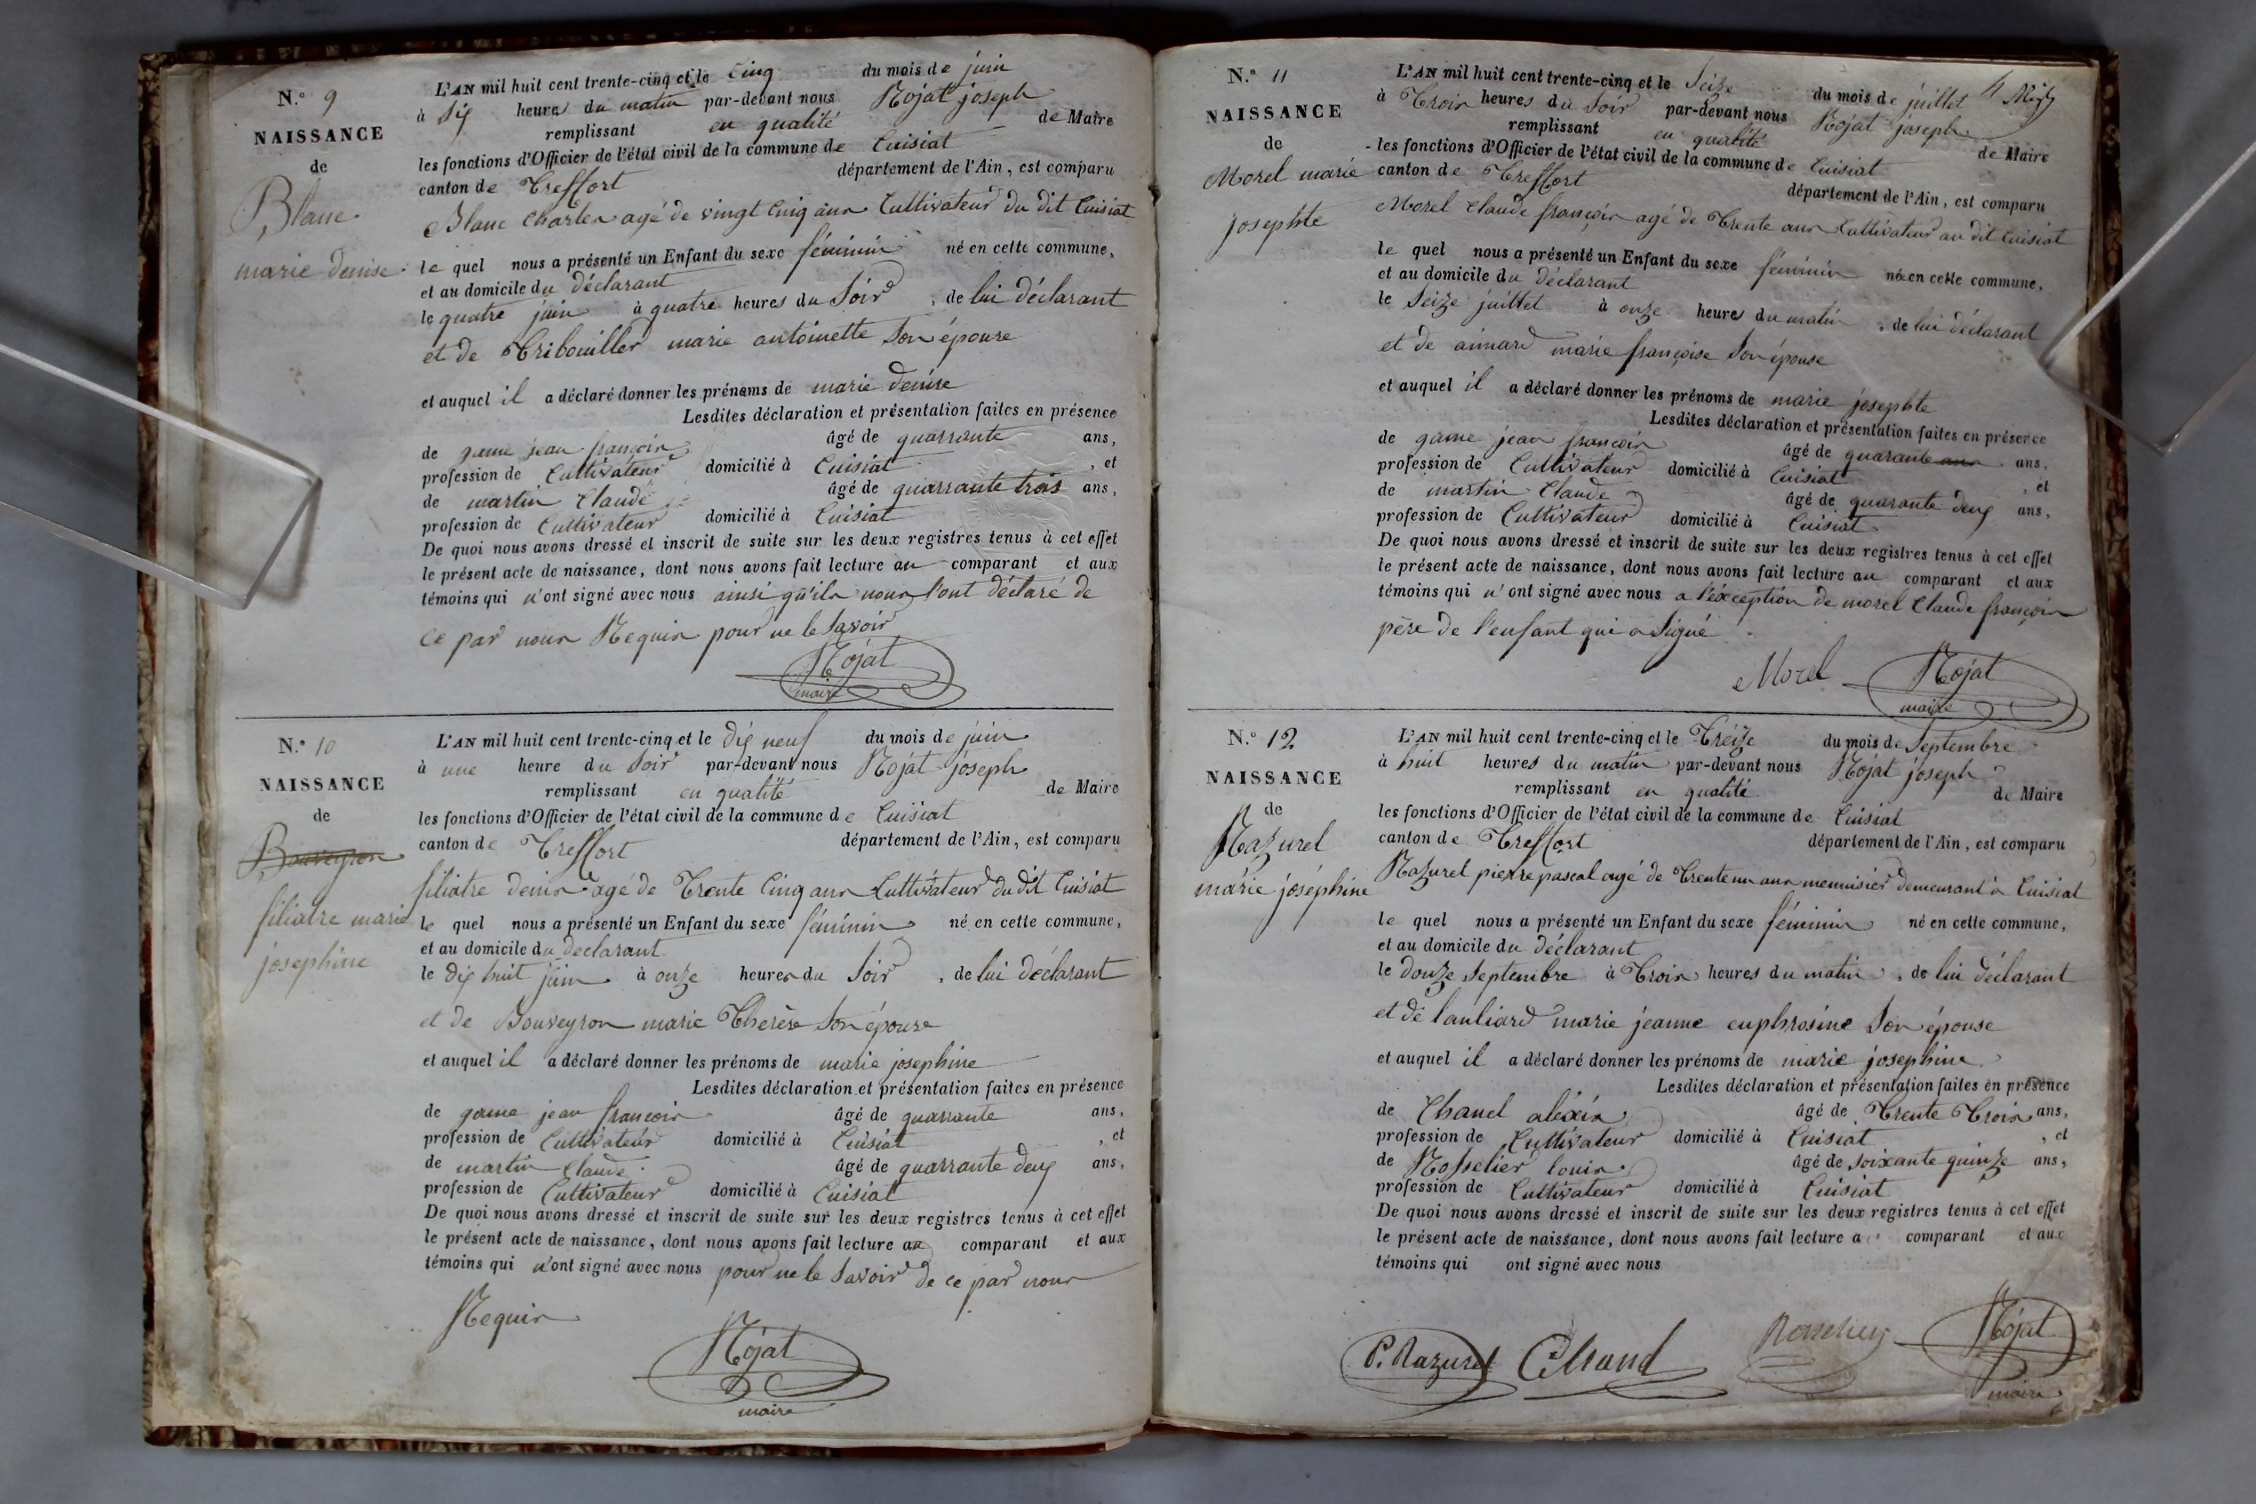 N.° 9
NAISSANCE
de
Blanc
marie denise
L'AN mil huit cent trente-cinq et le cinq du mois de juin
à six heures du matin par-devant nous Rojat joseph
remplissant en qualité de Maire
les fonctions d'Officier de l'état civil de la commune de Cuisiat
canton de Treffort département de l'Ain, est comparu
Blanc charles agé de vingt cinq ans Cultivateur du dit Cuisiat
le quel nous a présenté un Enfant du sexe féminin né en cette commune,
et au domicile du déclarant
le quatre juin à quatre heures du Soir, de lui déclarant
et de Tribouiller marie antoinette Son épouse
et auquel il a déclaré donner les prénoms de marie denise
Lesdites déclaration et présentation faites en présence
de game jean françois âgé de quarrante ans,
profession de Cultivateur domicilié à Cuisiat, et
de martin Claude âgé de quarrante trois ans,
profession de Cultivateur domicilié à Cuisiat
De quoi nous avons dressé et inscrit de suite sur les deux registres tenus à cet effet
le présent acte de naissance, dont nous avons fait lecture au comparant et aux
témoins qui n'ont signé avec nous ainsi qu'ils nous l'ont déclaré de
ce par nous Requis pour ne le Savoir
Rojat
maire
N.° 10
NAISSANCE
de
Bouveyron
filiatre marie
josephine
L'AN mil huit cent trente-cinq et le dix neuf du mois de juin
à une heure du Soir par-devant nous Rojat joseph
remplissant en qualité de Maire
les fonctions d'Officier de l'état civil de la commune de Cuisiat
canton de Treffort département de l'Ain, est comparu
filiatre denis agé de Trente Cinq ans Cultivateur du dit Cuisiat
le quel nous a présenté un Enfant du sexe féminin né en cette commune,
et au domicile du declarant
le dix huit juin à onze heures du Soir, de lui déclarant
et de Bouveyron marie Therèse Son épouse
et auquel il a déclaré donner les prénoms de marie josephine
Lesdites déclaration et présentation faites en présence
de game jean françois âgé de quarrante ans,
profession de Cultivateur domicilié à Cuisiat, et
de martin Claude âgé de quarrante deux ans,
profession de Cultivateur domicilié à Cuisiat
De quoi nous avons dressé et inscrit de suite sur les deux registres tenus à cet effet
le présent acte de naissance, dont nous avons fait lecture au comparant et aux
témoins qui n'ont signé avec nous pour ne le Savoir de ce par nous
Requis
Rojat
maire
N.° 11
NAISSANCE
de
Morel marie
josephte
L'AN mil huit cent trente-cinq et le Seize du mois de juillet
à Trois heures du Soir par-devant nous Rojat joseph
remplissant en qualité de Maire
les fonctions d'Officier de l'état civil de la commune de Cuisiat
canton de Treffort département de l'Ain, est comparu
Morel Claude françois agé de Trente ans Cultivateur au dit Cuisiat
le quel nous a présenté un Enfant du sexe féminin né en cette commune,
et au domicile du déclarant
le Seize juillet à onze heures du matin, de lui déclarant
et de aimard marie françoise Son épouse
et auquel il a déclaré donner les prénoms de marie josephte
Lesdites déclaration et présentation faites en présence
de game jean françois âgé de quarante ans ans,
profession de Cultivateur domicilié à Cuisiat, et
de martin Claude âgé de quarante deux ans,
profession de Cultivateur domicilié à Cuisiat
De quoi nous avons dressé et inscrit de suite sur les deux registres tenus à cet effet
le présent acte de naissance, dont nous avons fait lecture au comparant et aux
témoins qui n'ont signé avec nous a l'éxception de morel Claude françois
père de l'enfant qui a Signé
Morel Rojat
maire
N.° 12
NAISSANCE
de
Razurel
marie joséphine
L'AN mil huit cent trente-cinq et le Treize du mois de Septembre
à huit heures du matin par-devant nous Rojat joseph
remplissant en qualité de Maire
les fonctions d'Officier de l'état civil de la commune de Cuisiat
canton de Treffort département de l'Ain, est comparu
Razurel pierre pascal agé de Trente un ans menuisier demeurant à Cuisiat
le quel nous a présenté un Enfant du sexe féminin né en cette commune,
et au domicile du déclarant
le douze Septembre à Trois heures du matin, de lui déclarant
et de lauliard marie jeanne euphrosine Son épouse
et auquel il a déclaré donner les prénoms de marie josephine
Lesdites déclaration et présentation faites en présence
de Chanel aléxis âgé de Trente Trois ans,
profession de Cultivateur domicilié à Cuisiat, et
de Rosselier louis âgé de soixante quinze ans,
profession de Cultivateur domicilié à Cuisiat
De quoi nous avons dressé et inscrit de suite sur les deux registres tenus à cet effet
le présent acte de naissance, dont nous avons fait lecture a comparant et aux
témoins qui ont signé avec nous
P. Razurel Rojat
maire